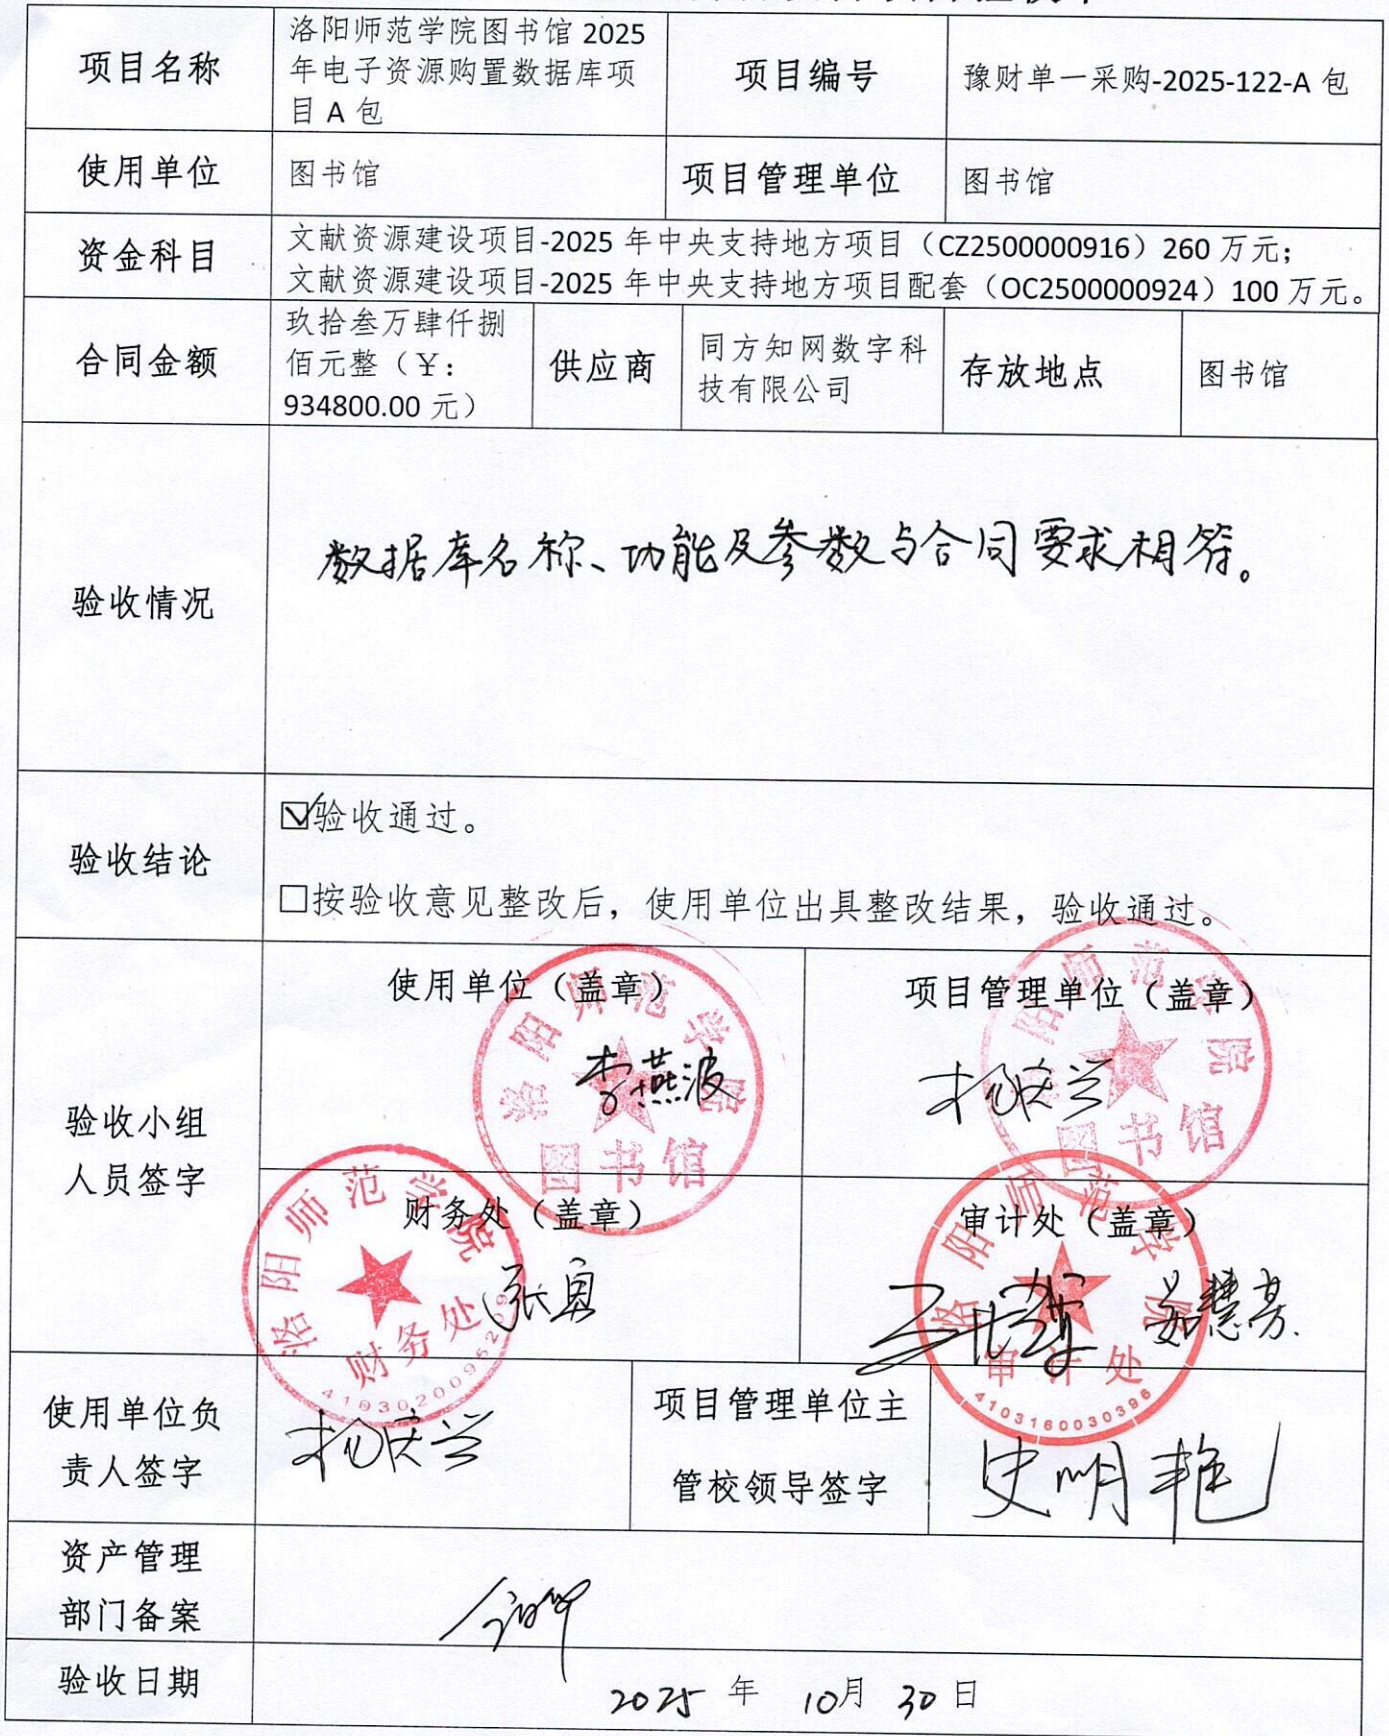 项目名称
洛阳师范学院图书馆 2025
年电子资源购置数据库项
目 A 包
项目编号
豫财单一采购-2025-122-A 包
使用单位
图书馆
项目管理单位
图书馆
资金科目
文献资源建设项目-2025 年中央支持地方项目（CZ2500000916）260 万元；
文献资源建设项目-2025 年中央支持地方项目配套（OC2500000924）100 万元。
合同金额
玖拾叁万肆仟捌
佰元整（￥：
934800.00 元）
供应商
同方知网数字科
技有限公司
存放地点
图书馆
验收情况
数据库名称、功能及参数与合同要求相符。
验收结论
☑验收通过。
☐按验收意见整改后，使用单位出具整改结果，验收通过。
验收小组
人员签字
使用单位（盖章）
洛阳师范学院
图书馆
李燕波
项目管理单位（盖章）
洛阳师范学院
图书馆
杨庆兰
财务处（盖章）
洛阳师范学院
财务处
张勇
审计处（盖章）
洛阳师范学院
审计处
4103160030396
使用单位负
责人签字
杨庆兰
项目管理单位主
管校领导签字
史明艳
资产管理
部门备案
验收日期
2025 年 10月 30 日